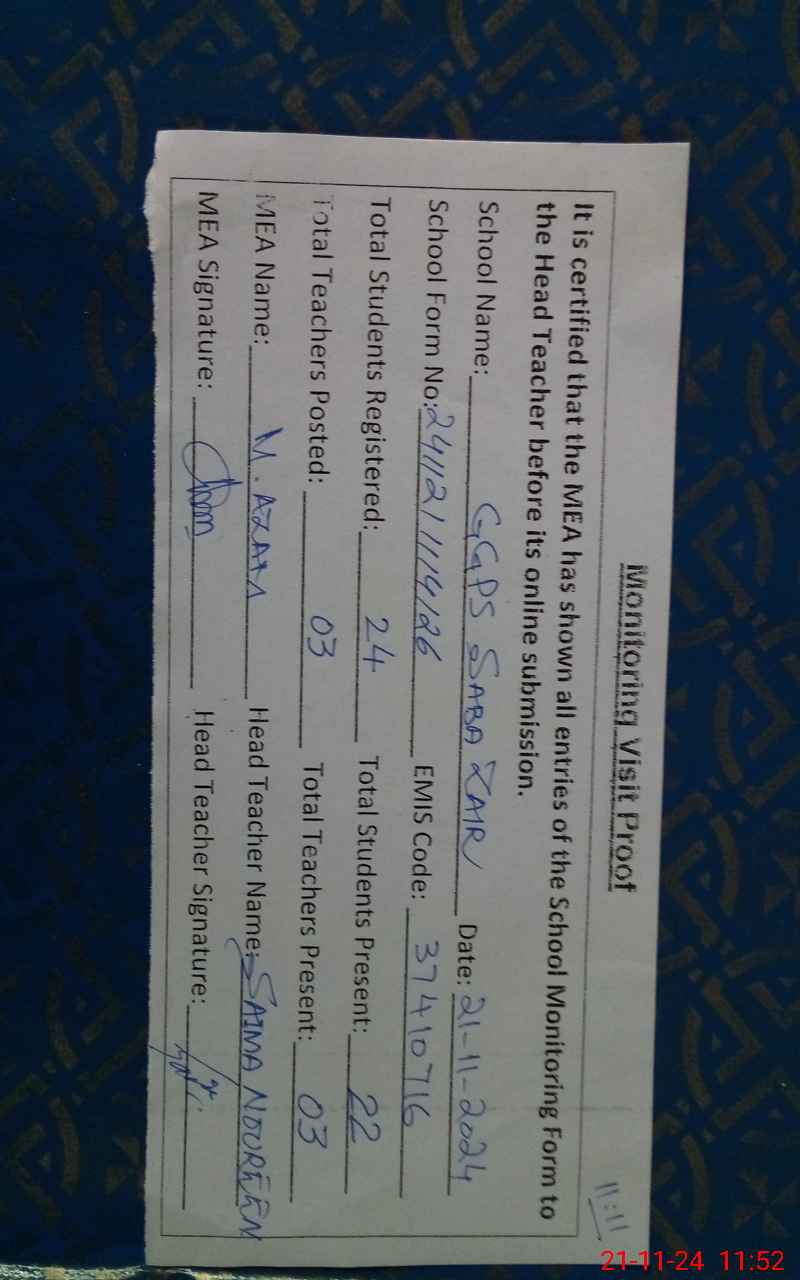 Monitoring Visit Proof
11:11
It is certified that the MEA has shown all entries of the School Monitoring Form to
the Head Teacher before its online submission.
School Name: GGPS SABA ZAIR Date: 21-11-2024
School Form No: EMIS Code: 37410716
Total Students Registered: 24 Total Students Present: 22
Total Teachers Posted: 03 Total Teachers Present: 03
MEA Name: M. AZAM Head Teacher Name: SAIMA NOUREEN
MEA Signature: Head Teacher Signature:
21-11-24 11:52